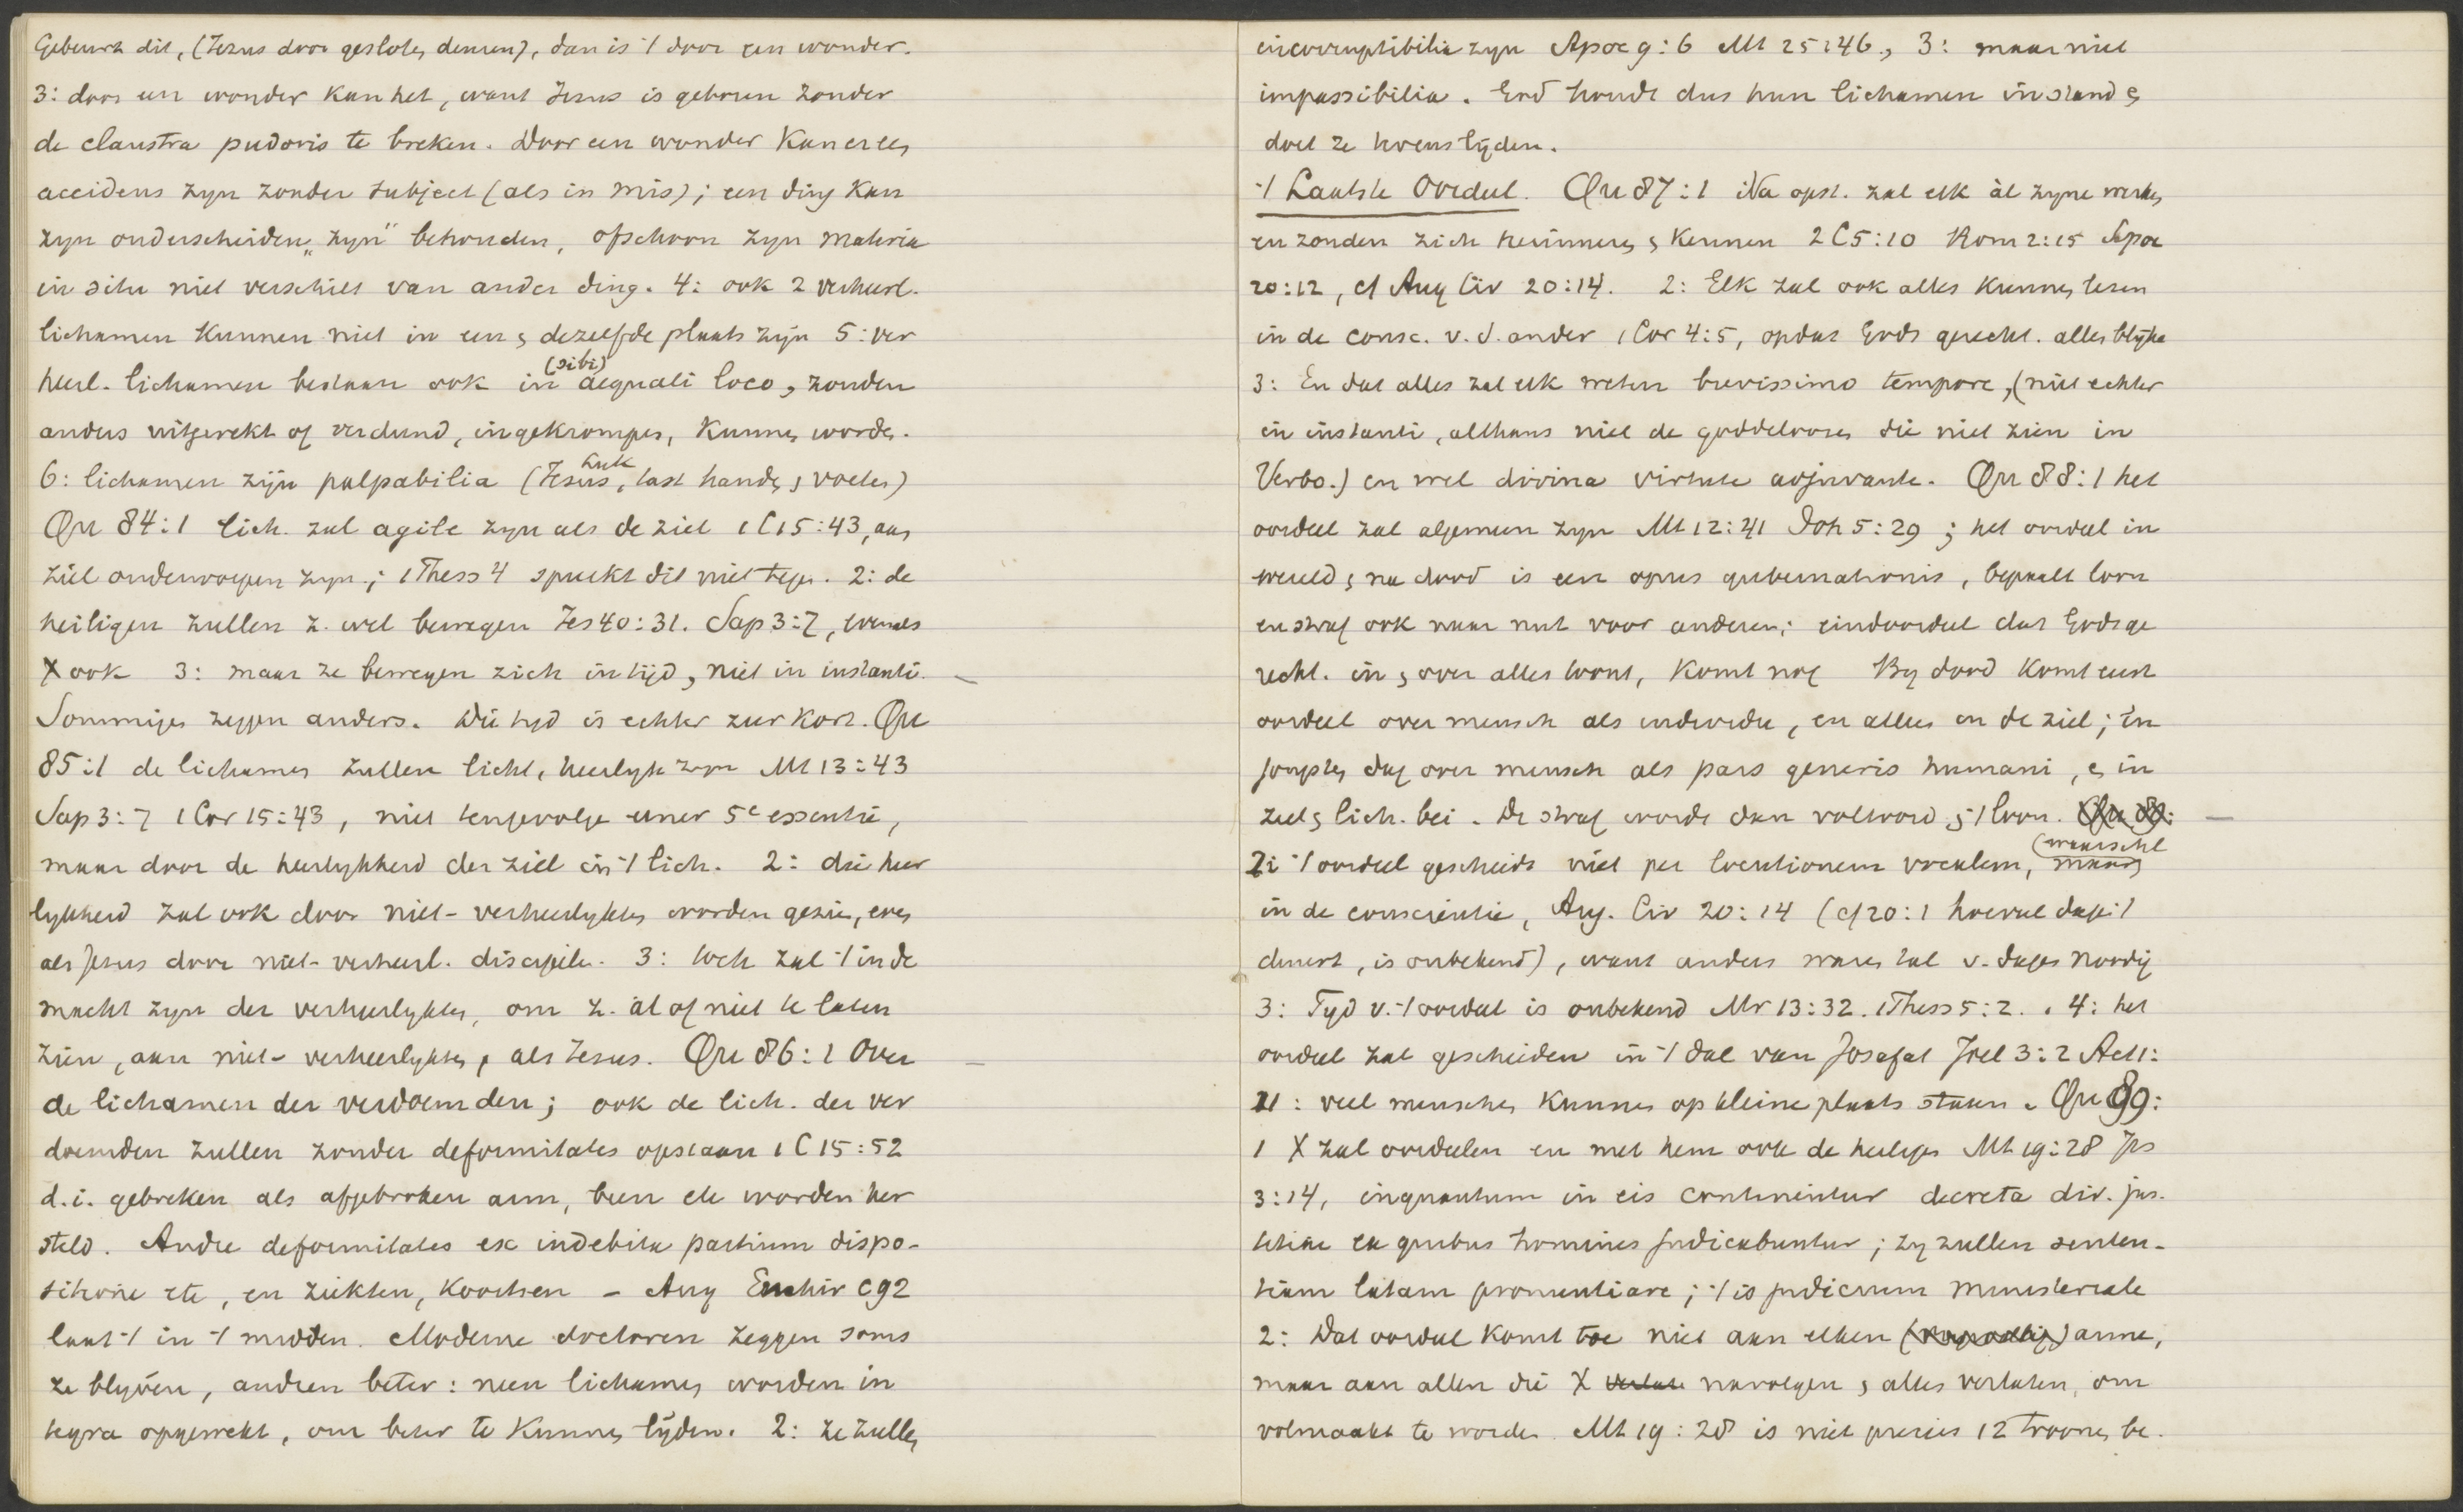 Gebeurt dit, (Jezus door geslote, deuren), dan is 't door een wonder.
3: door een wonder kan het, want Jezus is geboren zonder
de claustra pudoris te breken. Door een wonder kan er een
accidens zyn zonder subject (als in mis); een ding kan
zyn onderscheiden „zyn" behouden, ofschoon zyn materia
in situ niet verschilt van ander ding. 4: ook 2 verheerl.
lichamen kunnen niet in een & dezelfde plaats zijn 5: ver
heerl. lichamen bestaan ook in (sibi) aequali loco, zouden
anders uitgerekt of verdund, ingekrompen, kunnen worden.
6: lichamen zijn palpabilia (Jesus, Luk tast handen & voeten)
Qu 84:1 lich. zal agile zyn als de ziel 1 C 15:43, aan
ziel onderworpen zyn; 1 Thess 4 spreekt dit niet tegen. 2: de
heiligen zullen z. wel bewegen Jes 40:31. Sap 3:7, evenals
X ook 3: maar ze bewegen zich in tijd, niet in instanti. —
Sommigen zeggen anders. Die tyd is echter zeer kort. Qu
85:1 de lichamen zullen licht, heerlyk zyn Mt 13:43
Sap 3:7 1 Cor 15:43, niet tengevolge eener 5e essentie,
maar door de heerlykheid der ziel in 't lich. 2: die heer
lykheid zal ook door niet-verheerlykten worden gezien, even
als Jesus door niet-verheerl. discipelen. 3: toch zal 't in de
macht zyn der verheerlykten, om z. al of niet te laten
zien, aan niet-verheerlykten, als Jesus. Qu 86:1 Over —
de lichamen der verdoemden; ook de lich. der ver
doemden zullen zonder deformitates opstaan 1 C 15:52
d.i. gebreken als afgebroken arm, been etc worden her
steld. Andre deformitates ex indebita partium dispo-
sitione etc, en ziekten, koortsen – Aug Enchir c92
laat 't in 't midden. Moderne doctoren zeggen soms
ze blyven, andren beter: neen lichamen worden in
tegra opgewekt, om beter te kunnen lyden. 2: Ze zullen
incorruptibilia zyn Apoc 9:6 Mt 25:46, 3: maar niet
impassibilia. God houdt dus hun lichamen in stand &
doet ze tevens lyden.
't Laatste Oordeel. Qu 87:1 Na opst. zal elk àl zyne werken
en zonden zich herinneren & kennen 2 C 5:10 Rom 2:15 Apoc
20:12, cf Aug Civ 20:14. 2: Elk zal ook alles kunnen lezen
in de consc. v. d. ander 1 Cor 4:5, opdat Gods gerecht. alles blijke
3: En dat alles zal elk weten brevissimo tempore, (niet echter
in instanti, althans niet de goddeloozen die niet zien in
Verbo.) en wel divina virtute adjuvante. Qu 88:1 het
oordeel zal algemeen zyn Mt 12:41 Joh 5:29; het oordeel in
wereld & na dood is een opus gubernationis, bepaalt loon
en straf ook naar nut voor anderen; eindoordeel dat Gods ge
recht. in & over alles toont, komt nog By dood komt eerst
oordeel over mensch als individu, en alleen on de ziel; in
jongsten dag over mensch als pars generis humani, & in
ziel & lich. bei. De straf wordt dan voltooid & 't loon. Qu 89: —
2: 't oordeel geschiedt niet per locutionem vocalem, (waarschl maar
in de conscientie, Aug. Civ 20:14 (cf 20:1 hoeveel dagen 't
duurt, is onbekend), want anders waren tal v. dagen noodig
3: Tyd v. 't oordeel is onbekend Mr 13:32. 1 Thess 5:2. . 4: het
oordeel zal geschieden in 't dal van Josafat Joel 3:2 Act 1:
11: veel menschen kunnen op kleine plaats staan. Qu 89:
1 X zal oordeelen en met hem ook de heiligen Mt 19:28 Jes
3:14, inquantum in eis continentur decreta div. jus.
titiae ex quibus homines judicabuntur; zy zullen senten-
tiam latam pronuntiare; 't is judicium ministeriale
2: Dat oordeel komt toe niet aan elken arme,
maar aan allen die X verlate navolgen & alles verlaten, om
volmaakt te worden Mt 19:28 is niet precies 12 troonen be.